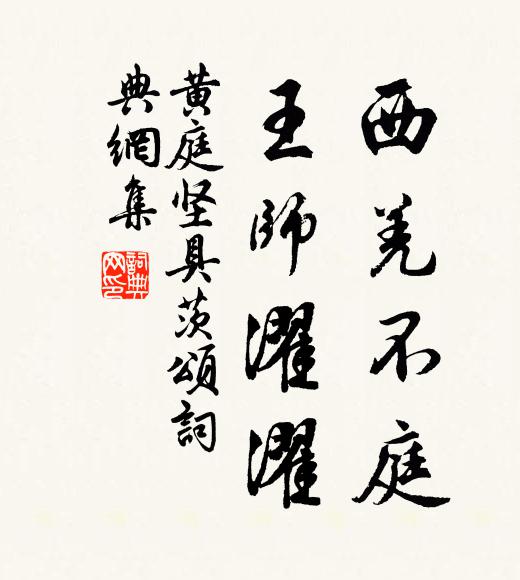 西羌不庭
王師濯濯
黄庭坚具茨頌詞
典網集
詞典
网印